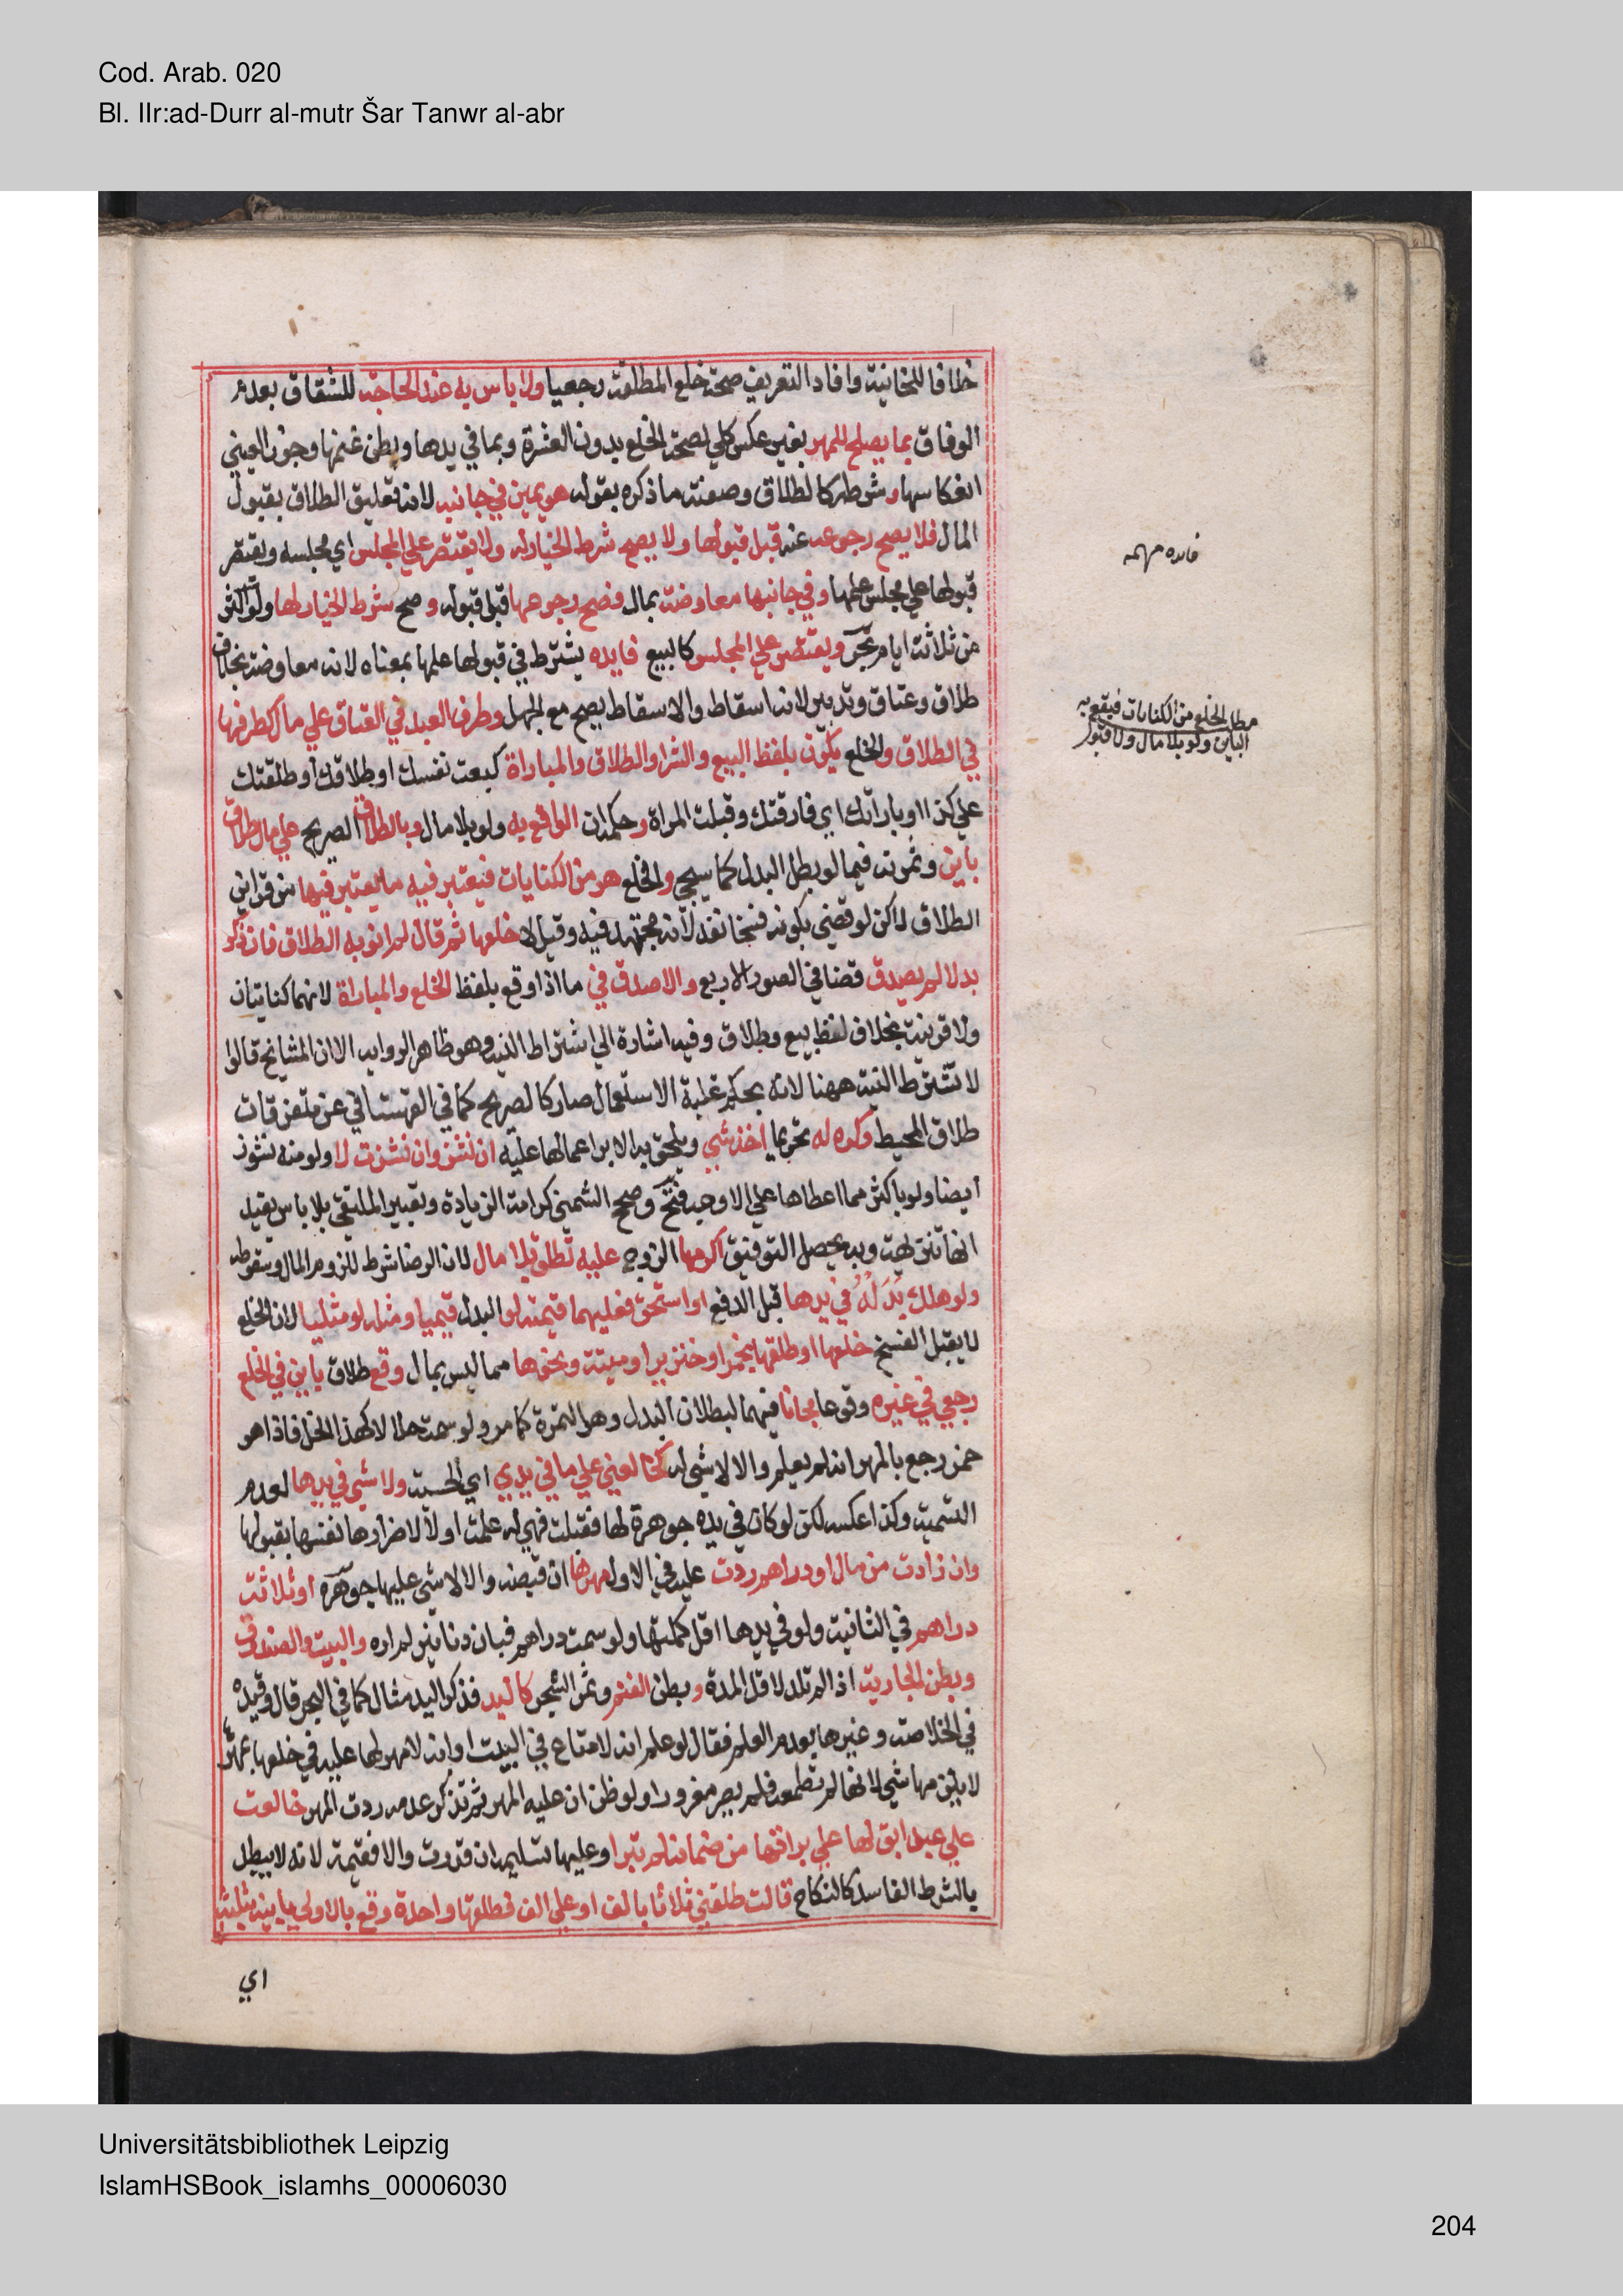 Cod. Arab. 020
Bl. IIr:ad-Durr al-mutr Šar Tanwr al-abr
خلافا للخانية وافاد التعريف صحة خلع المطلقة رجعيا ولا باس به عند الحاجة للشقاق بعدم
الوفاق بما يصلح للمهر بغير عكس كلي لصحة الخلع بدون العشرة وبما في يدها وبطن غنمها وجوز العيني
انعكاسها وشرطه كالطلاق وصفته ما ذكره بقوله هو يمين في جانبه لانه تعليق الطلاق بقبول
المال فلا يصح رجوعه عنه قبل قبولها ولا يصح شرط الخيار له ولا يقتصر علي المجلس اي مجلسه ويقتصر
قبولها علي مجلس علمها وفي جانبها معاوضة بمال فصح رجوعها قبل قبوله وصح شرط الخيار لها ولو اكثر
من ثلاثة ايام بحر ويقتصر علي المجلس كالبيع فايده يشترط في قبولها علمها بمعناه لانه معاوضة بخلاف
طلاق وعتاق وتدبير لانه اسقاط والاسقاط يصح مع الجهل وطرف العبد في العتاق علي مال كطرفها
في الطلاق والخلع يكون بلفظ البيع والشرا والطلاق والمباراة كبعت نفسك او طلاقك او طلقتك
علي كذا او باراتك اي فارقتك وقبلت المراة وحكمه ان الواقع به ولو بلا مال وبالطلاق الصريح علي مال طلاق
باين وثمرته فيما لو بطل البدل كما سيجي والخلع هو من الكنايات فيعتبر فيه ما يعتبر فيها من قراين
الطلاق لاكن لو قضي بكونه فسخا نفذ لانه مجتهد فيه وقيل لا خلعها ثم قال لم انو به الطلاق فان ذكر
بدلا لم يصدق قضا في الصور الاربع والا صدق في ما اذا وقع بلفظ الخلع والمباراة لانهما كنايتان
ولا قرينة بخلاف لفظ بيع وطلاق وفيه اشارة الي اشتراط النية وهو ظاهر الرواية الا ان المشايخ قالوا
لا تشترط النية ههنا لانه بحكم غلبة الاستعمال صار كالصريح كما في القهستاني عن متفرقات
طلاق المحيط وكره له تحريما اخذ شي ويلحق به الابرا عما لها عليه ان نشز وان نشزت لا ولو منه نشوز
ايضا ولو باكثر مما اعطاها علي الاوجه فتح وصحح الشمني كراهة الزيادة وتعبير الملتقي بلا باس يفيد
انها تنزيهية وبه يحصل التوفيق اكرهها الزوج عليه تطلق بلا مال لان الرضا شرط للزوم المال وسقوطه
ولو هلك بَدَلُهُ في يدها قبل الدفع او استحق فعليها قيمته لو البدل قيميا ومثله لو مثليا لان الخلع
لا يقبل الفسخ خلعها او طلقها بخمر او خنزير او ميتة ونحوها مما ليس بمال وقع طلاق باين في الخلع
رجعي في غيره وقوعا مجانا فيهما لبطلان البدل وهو الثمرة كما مر ولو سمت حلالا كهذا الخل فاذا هو
خمر رجع بالمهر ان لم يعلم والا لا شي له كخالعني علي ما في يدي اي الحسية ولا شي في يدها لعدم
التسمية وكذا عكسه لكن لو كان في يده جوهرة لها فقبلت فهي له علمت او لا لاضرارها نفسها بقبولها
وان زادت من مال او دراهم ردت عليه في الاولي مهرها ان قبضته والا لا شي عليها جوهرة او ثلاثة
دراهم في الثانية ولو في يدها اقل كملتها ولو سمت دراهم فبان دنانير لم اره والبيت والصندوق
وبطن الجارية اذا لم تلد لاقل المدة وبطن الغنم وثمر الشجر كاليد فذكر اليد مثال كما في البحر قال وقيده
في الخلاصة وغيرها بعدم العلم فقال لو علم انه لا متاع في البيت او انه لا مهر لها عليه في خلعها بمهرها
لا يلزمها شي لانها لم تطمعه فلم يصر مغرورا ولو ظن ان عليه المهر ثم تذكر عدمه ردت المهر خالعت
علي عبد ابق لها علي براتها من ضمانه لم تبرا وعليها تسليمه ان قدرت والا فقيمته لانه لا يبطل
بالشرط الفاسد كالنكاح قالت طلقني ثلاثا بالف او علي الف فطلقها واحدة وقع بالاولي باينة بثلثه
اي
فايده مهمه
مطل الخلع من الكنايات فيقع به
الباين ولو بلا مال ولا قبول
Universitätsbibliothek Leipzig
IslamHSBook_islamhs_00006030
204